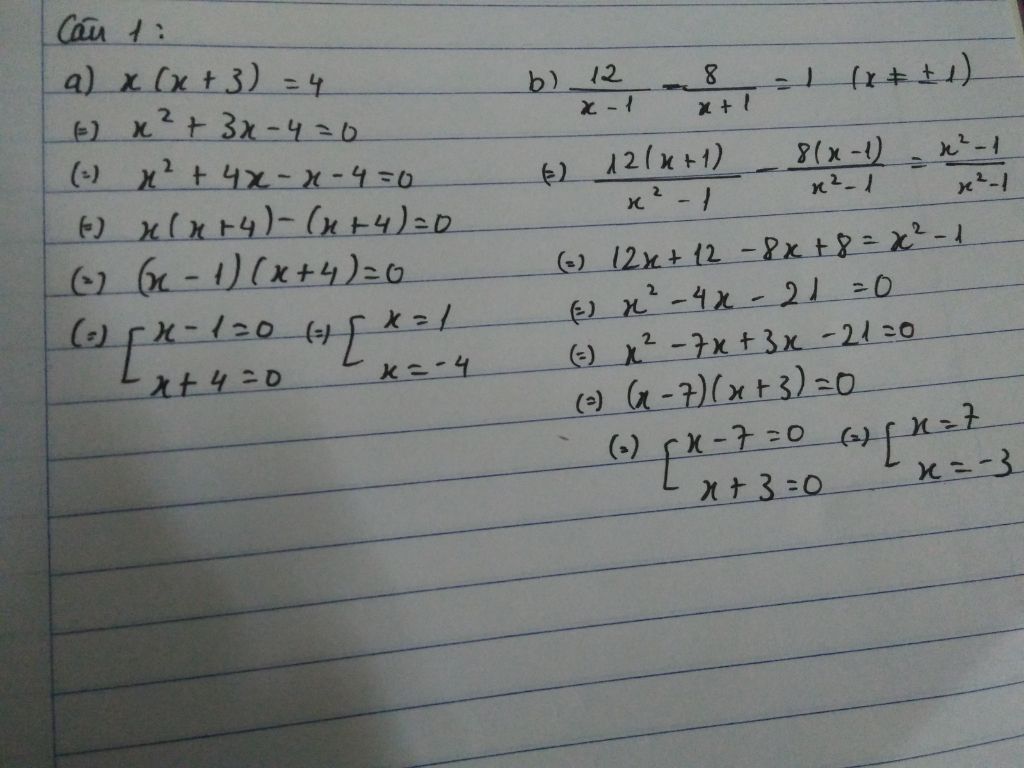 Câu 1:
a) x(x+3) = 4
(=) x² + 3x - 4 = 0
(=) x² + 4x - x - 4 = 0
(=) x(x+4) - (x+4) = 0
(=) (x - 1)(x+4) = 0
(=) [ x - 1 = 0 (=) [ x = 1
x + 4 = 0 x = -4
b) 12/(x-1) - 8/(x+1) = 1 (x ≠ ±1)
(=) 12(x+1)/(x²-1) - 8(x-1)/(x²-1) = (x²-1)/(x²-1)
(=) 12x + 12 - 8x + 8 = x² - 1
(=) x² - 4x - 21 = 0
(=) x² - 7x + 3x - 21 = 0
(=) (x - 7)(x + 3) = 0
(=) [ x - 7 = 0 (=) [ x = 7
x + 3 = 0 x = -3